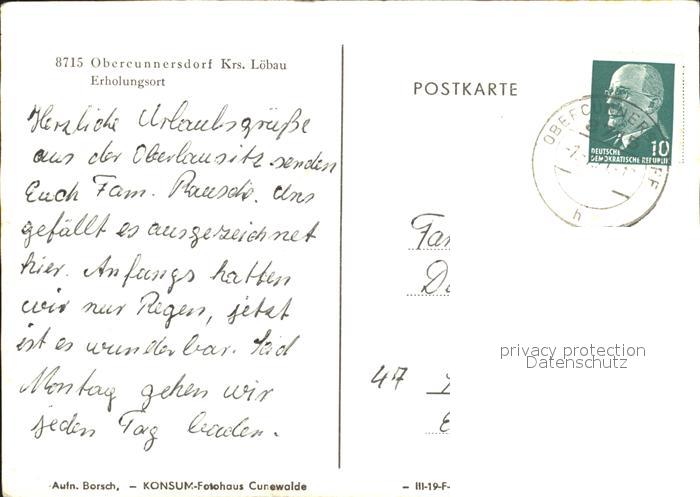 8715 Obercunnersdorf Krs. Löbau
Erholungsort
Herzliche Urlaubsgrüße
aus der Oberlausitz senden
Euch Fam. Rausch. Uns
gefällt es ausgezeichnet
hier. Anfangs hatten
wir nur Regen, jetzt
ist es wunderbar. Seid
Montag gehen wir
jeden Tag baden.
Aufn. Borsch, – KONSUM-Fotohaus Cunewalde
POSTKARTE
10
DEUTSCHE
DEMOKRATISCHE REPUBLIK
Fam
47
– III-19-F-
privacy protection
Datenschutz